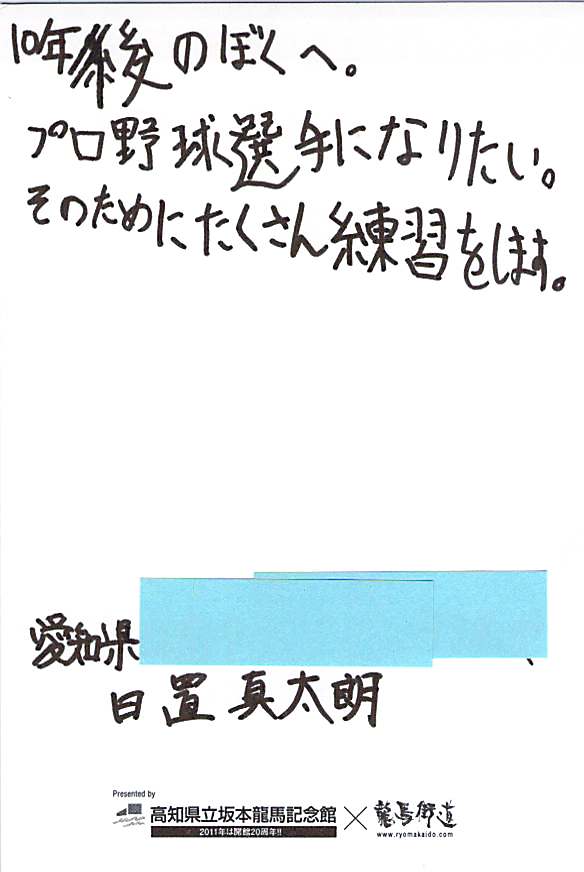 10年後のぼくへ。
プロ野球選手になりたい。
そのためにたくさん練習をします。
愛知県
日置真太朗
Presented by
高知県立坂本龍馬記念館×龍馬街道
2011年は開館20周年!!
www.ryomakaido.com